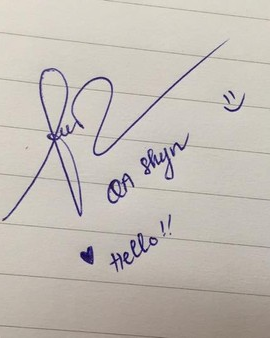 QA Shyn
Hello!!